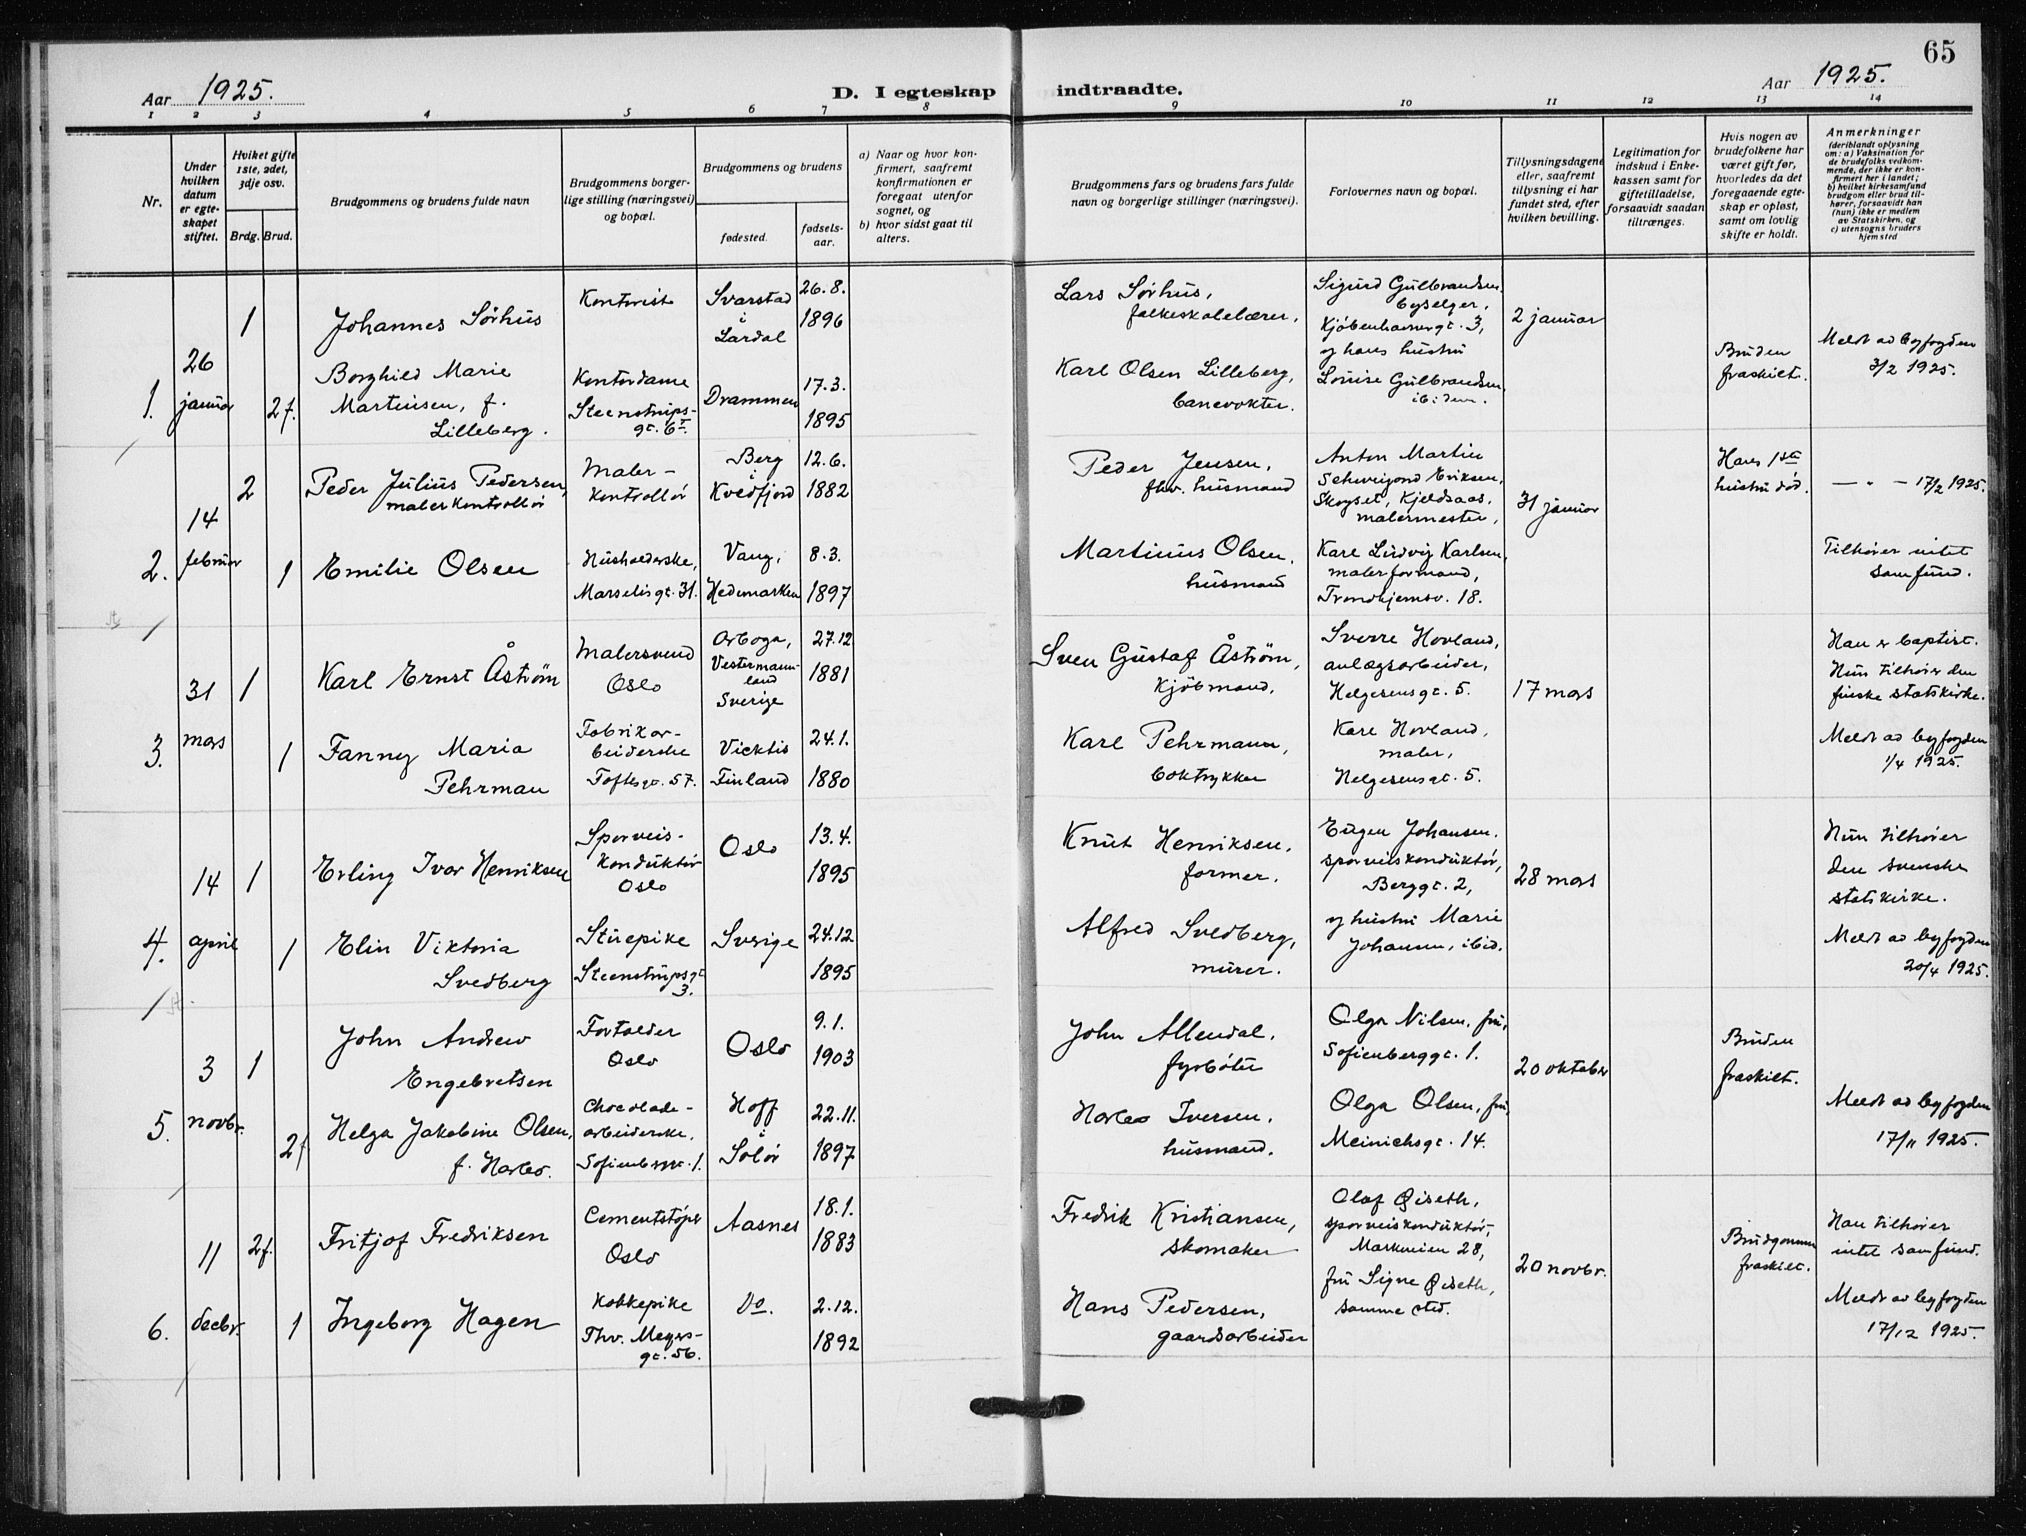 65
Aar 1925.
D. I egteskap indtraadte.
Aar 1925.
1 2 3 4 5 6 7 8 9 10 11 12 13 14
Nr.
Under
hvilken
datum
er egte-
skapet
stiftet.
Hviket gifte
1ste, 2det,
3dje osv.
Brdg. Brud.
Brudgommens og brudens fulde navn
Brudgommens borger-
lige stilling (næringsvei)
og bopæl.
Brudgommens og brudens
fødested.
fødsels-
aar.
a) Naar og hvor kon-
firmert, saafremt
konfirmationen er
foregaat utenfor
sognet, og
b) hvor sidst gaat til
alters.
Brudgommens fars og brudens fars fulde
navn og borgerlige stillinger (næringsvei).
Forlovernes navn og bopæl.
Tillysningsdagene
eller, saafremt
tillysning ei har
fundet sted, efter
hvilken bevilling.
Legitimation for
indskud i Enke-
kassen samt for
giftetilladelse,
forsaavidt saadan
tiltrænges.
Hvis nogen av
brudefolkene har
været gift før,
hvorledes da det
foregaaende egte-
skap er opløst,
samt om lovlig
skifte er holdt.
Anmerkninger
(deriblandt oplysning
om: a) Vaksination for
de brudefolks vedkom-
mende, der ikke er kon-
firmert her i landet;
b) hvilket kirkesamfund
brudgom eller brud til-
hører, forsaavidt han
(hun) ikke er medlem
av Statskirken, og
c) utensogns bruders
hjemsted
1.
26
januar
1
Johannes Sørhus
Kontorist
Svarstad
i
Lardal
26.8.
1896
Lars Sørhus,
folkeskolelærer.
Sigurd Gulbrandsen,
byselger,
Kjøbenhavnergt. 3,
og hans hustru
2 januar
2 f.
Borghild Marie
Martinsen, f.
Lilleberg.
Kontordame
Steenstrups-
gt. 6 I.
Drammen
17.3.
1895
Karl Olsen Lilleberg,
banevokter.
Louise Gulbrandsen,
ibidem.
Bruden
fraskilt.
Meldt av byfogden
3/2 1925.
2.
14
februar
2
Peder Julius Pedersen,
malerkontrollør
Maler-
kontrollør
Berg
i
Kvedfjord
12.6.
1882
Peder Jensen,
fhv. husmand
Anton Martin
Schweigaard Eriksen,
Skogset, Kjelsaas,
malermester,
31 januar
Hans 1ste
hustru død.
— " — 17/2 1925.
1
Emilie Olsen
Husholderske,
Marselisgt. 31.
Vang,
Hedemarken
8.3.
1897
Martinius Olsen,
husmand
Karl Ludvig Karlsen,
malerformand,
Trondhjemsv. 18.
Tilhører intet
samfund.
3.
31
mars
1
Karl Ernst Åström
Malersvend
Oslo
Arboga,
Vestermann-
land
Sverige
27.12
1881
Sven Gustaf Åström,
Kjøbmand.
Sverre Hovland,
anlægsarbeider,
Helgesensgt. 5.
17 mars
Han er baptist.
Hun tilhører den
finske statskirke.
1
Fanny Maria
Pehrman
Fabrikar-
beiderske
Toftesgt. 57.
Vicktis
Finland
24.1.
1880
Karl Pehrmann,
boktrykker
Karl Hovland,
maler,
Helgesensgt. 5.
Meldt av byfogden
1/4 1925.
4.
14
april
1
Erling Ivar Henriksen
Sporveis-
konduktør
Oslo
Oslo
13.4.
1895
Knut Henriksen,
former.
Eugen Johansen,
sporveiskonduktør,
Berggt. 2,
28 mars
Hun tilhører
den svenske
statskirke.
1
Elin Viktoria
Svedberg
Stuepike
Steenstrupsgt
3.
Sverige
24.12
1895
Alfred Svedberg,
murer.
og hustru Marie
Johansen, ibid.
Meldt av byfogden
20/4 1925.
5.
3
novbr.
1
John Andrew
Engebretsen
Fortolder
Oslo
Oslo
9.1.
1903
John Allendal,
fyrbøter
Olga Nilsen, fru,
Sofienberggt. 1.
20 oktober
Bruden
fraskilt.
2 f
Helga Jakobine Olsen,
f. Narbo.
Chocolade-
arbeiderske.
Sofienberggt. 1.
Hoff
i
Solør
22.11.
1897
Narbo Iversen,
husmand.
Olga Olsen, fru,
Meinichsgt. 14.
Meldt av byfogden
17/11 1925.
6.
11
desbr.
2 f.
Fritjof Fredriksen
Cementstøper
Oslo
Aasnes
18.1.
1883
Fredrik Kristiansen,
skomaker
Olaf Øiseth,
sporveiskonduktør,
Markveien 28,
20 novbr.
Brudgommen
fraskilt.
Han tilhører
intet samfund.
1
Ingeborg Hagen
Kokkepike
Thv. Meyers-
gt. 56.
Do.
2.12.
1892
Hans Pedersen,
gaardsarbeider
fru Signe Øiseth,
samme sted.
Meldt av byfogden
17/12 1925.